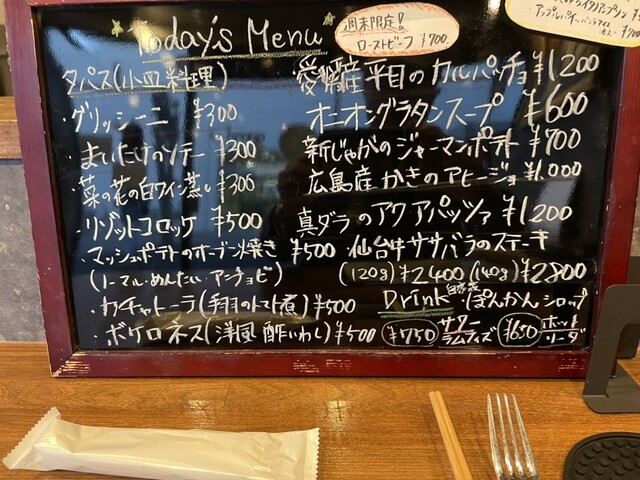 Today's Menu
週末限定!
ローストビーフ ¥700
タパス(小皿料理)
・グリッシーニ ¥300
・まいたけのソテー ¥300
・菜の花の白ワイン蒸し ¥300
・リゾットコロッケ ¥500
・マッシュポテトのオーブン焼き ¥500
(ノーマル・めんたい・アンチョビ)
・カチャトーラ(手羽のトマト煮) ¥500
・ボケロネス(洋風酢いわし) ¥500
・愛媛産平目のカルパッチョ ¥1200
オニオングラタンスープ ¥600
新じゃがのジャーマンポテト ¥700
広島産かきのアヒージョ ¥1,000
真ダラのアクアパッツァ ¥1200
・仙台牛ササバラのステーキ
(120g) ¥2400 (140g) ¥2800
Drink 自家製・ぽんかんシロップ
¥750 サワー ラムフィズ ¥650 ホット ソーダ